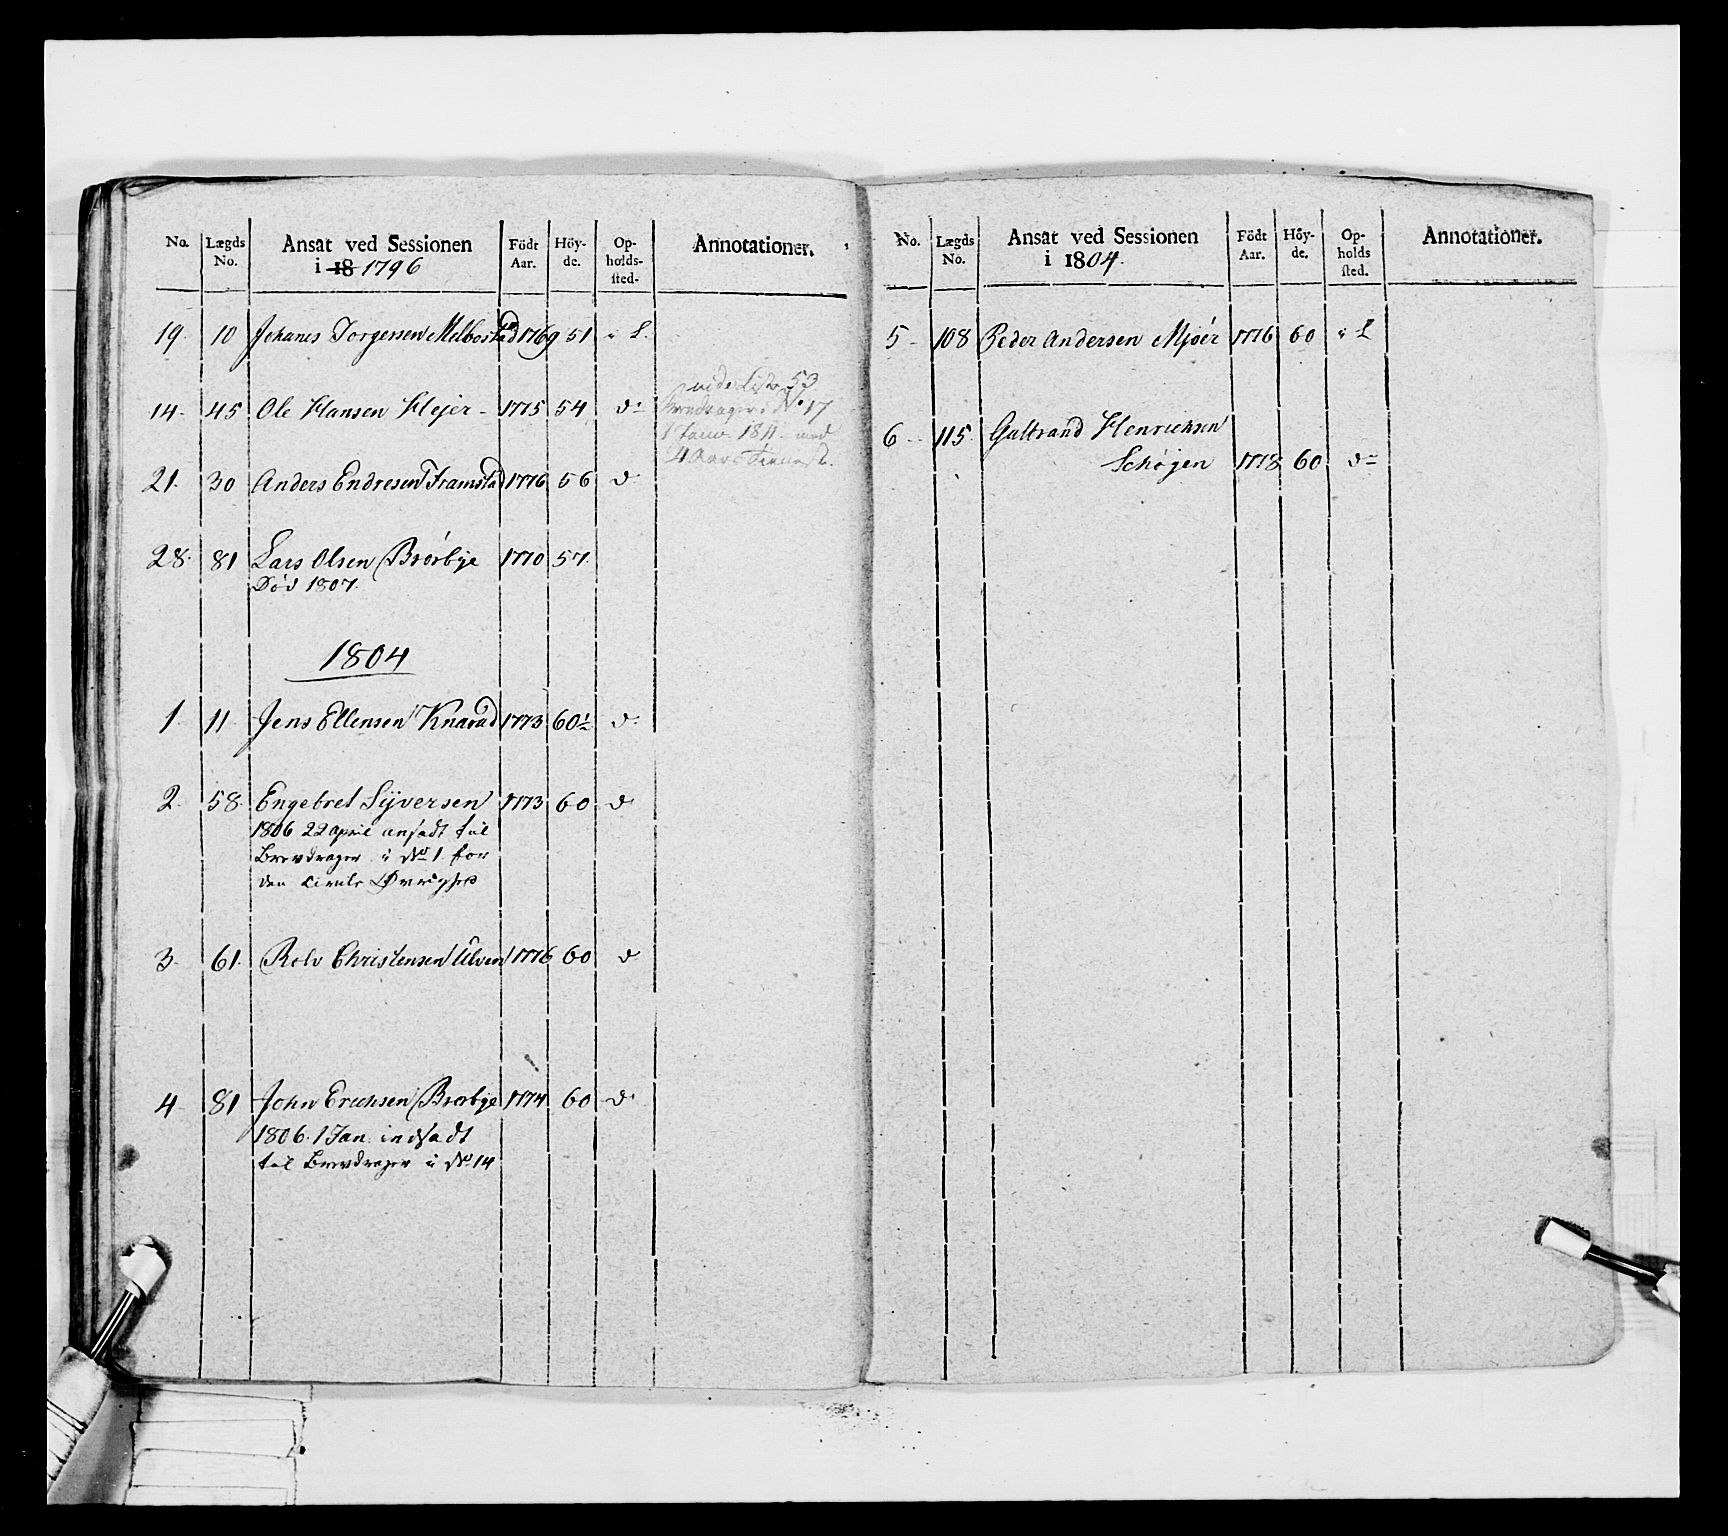 No. Lægds No. Ansat ved Sessionen i 18 1796 Födt Aar. Höyde. Opholds-sted. Annotationer.
19. 10 Johanes Torgersen Melbostad 1769 51 i L.
vide Liste 53
14. 45 Ole Hansen Hejer 1775 54 do
Brevdrager i No 17
1 Janv. 1811 med
4 Aars Tieneste.
21. 30 Anders Endresen Framstad 1776 56 do
28. 81 Lars Olsen Brørbye 1770 57.
Död 1807.
1804
1. 11 Jens Ellensen Knarud 1773 60½ do
2. 58. Engebret Syversen 1773 60 do
1806 22 April ansadt til
Brevdrager i No 1 for
den Civile Øvrighed
3. 61. Rolv Christensen Ulven 1776 60 do
4. 81 John Erichsen Brørbye 1774 60 do
1806. 1 Jan. indsadt
til Brevdrager i No 14
No. Lægds No. Ansat ved Sessionen i 1804. Födt Aar. Höyde. Opholds sted. Annotationer.
5. 108 Peder Andersen Mjøer 1776 60 i L
6. 115. Gulbrand Henrichsen
Schøjen 1778 60 do